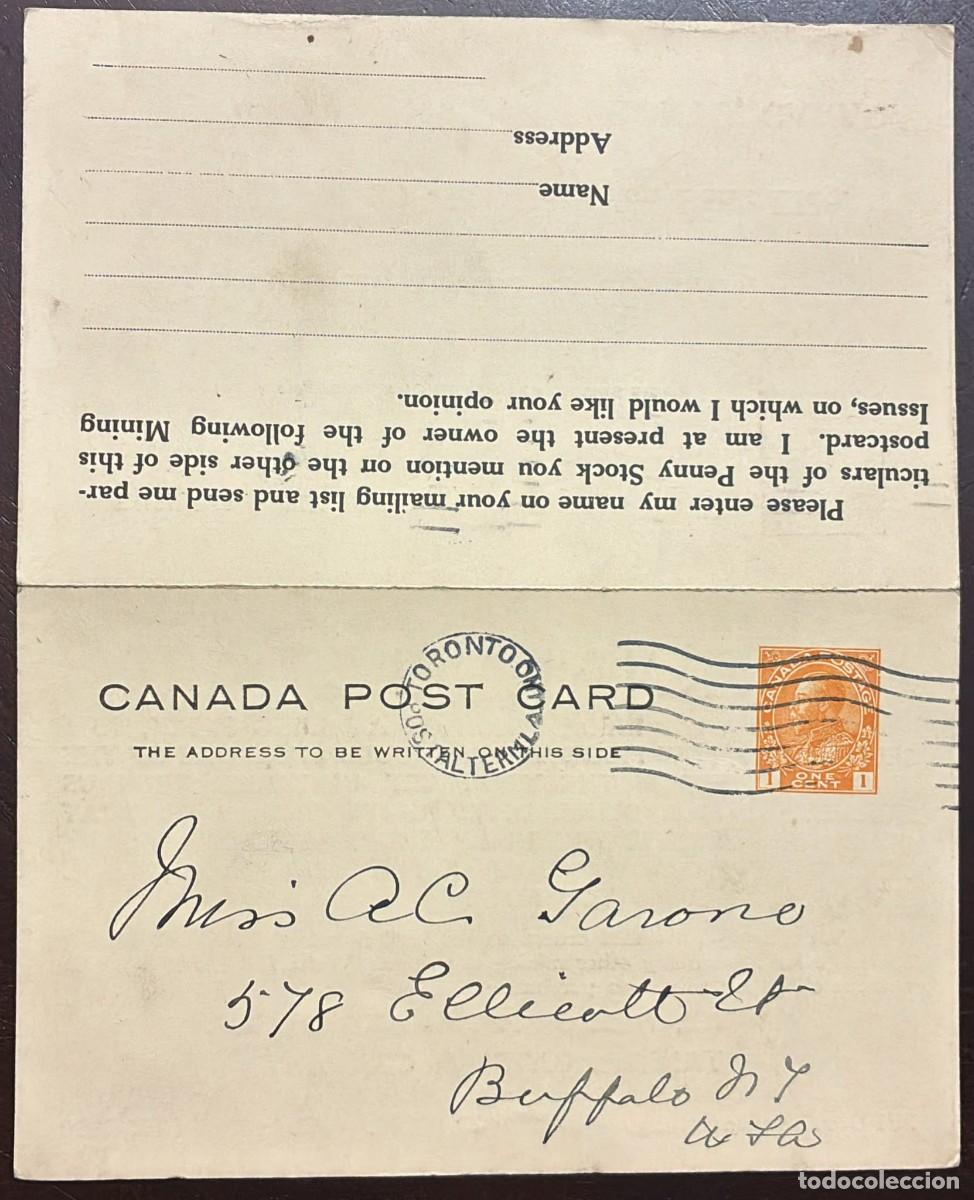 Please enter my name on your mailing list and send me par-
ticulars of the Penny Stock you mention on the other side of this
postcard. I am at present the owner of the following Mining
Issues, on which I would like your opinion.
Name
Address
CANADA POST CARD
THE ADDRESS TO BE WRITTEN ON THIS SIDE
TORONTO ONT.
POSTAL TERML A
CANADA POSTAGE
1 ONE CENT 1
Miss A C Garono
578 Ellicott St
Buffalo N Y
U S A
todocoleccion